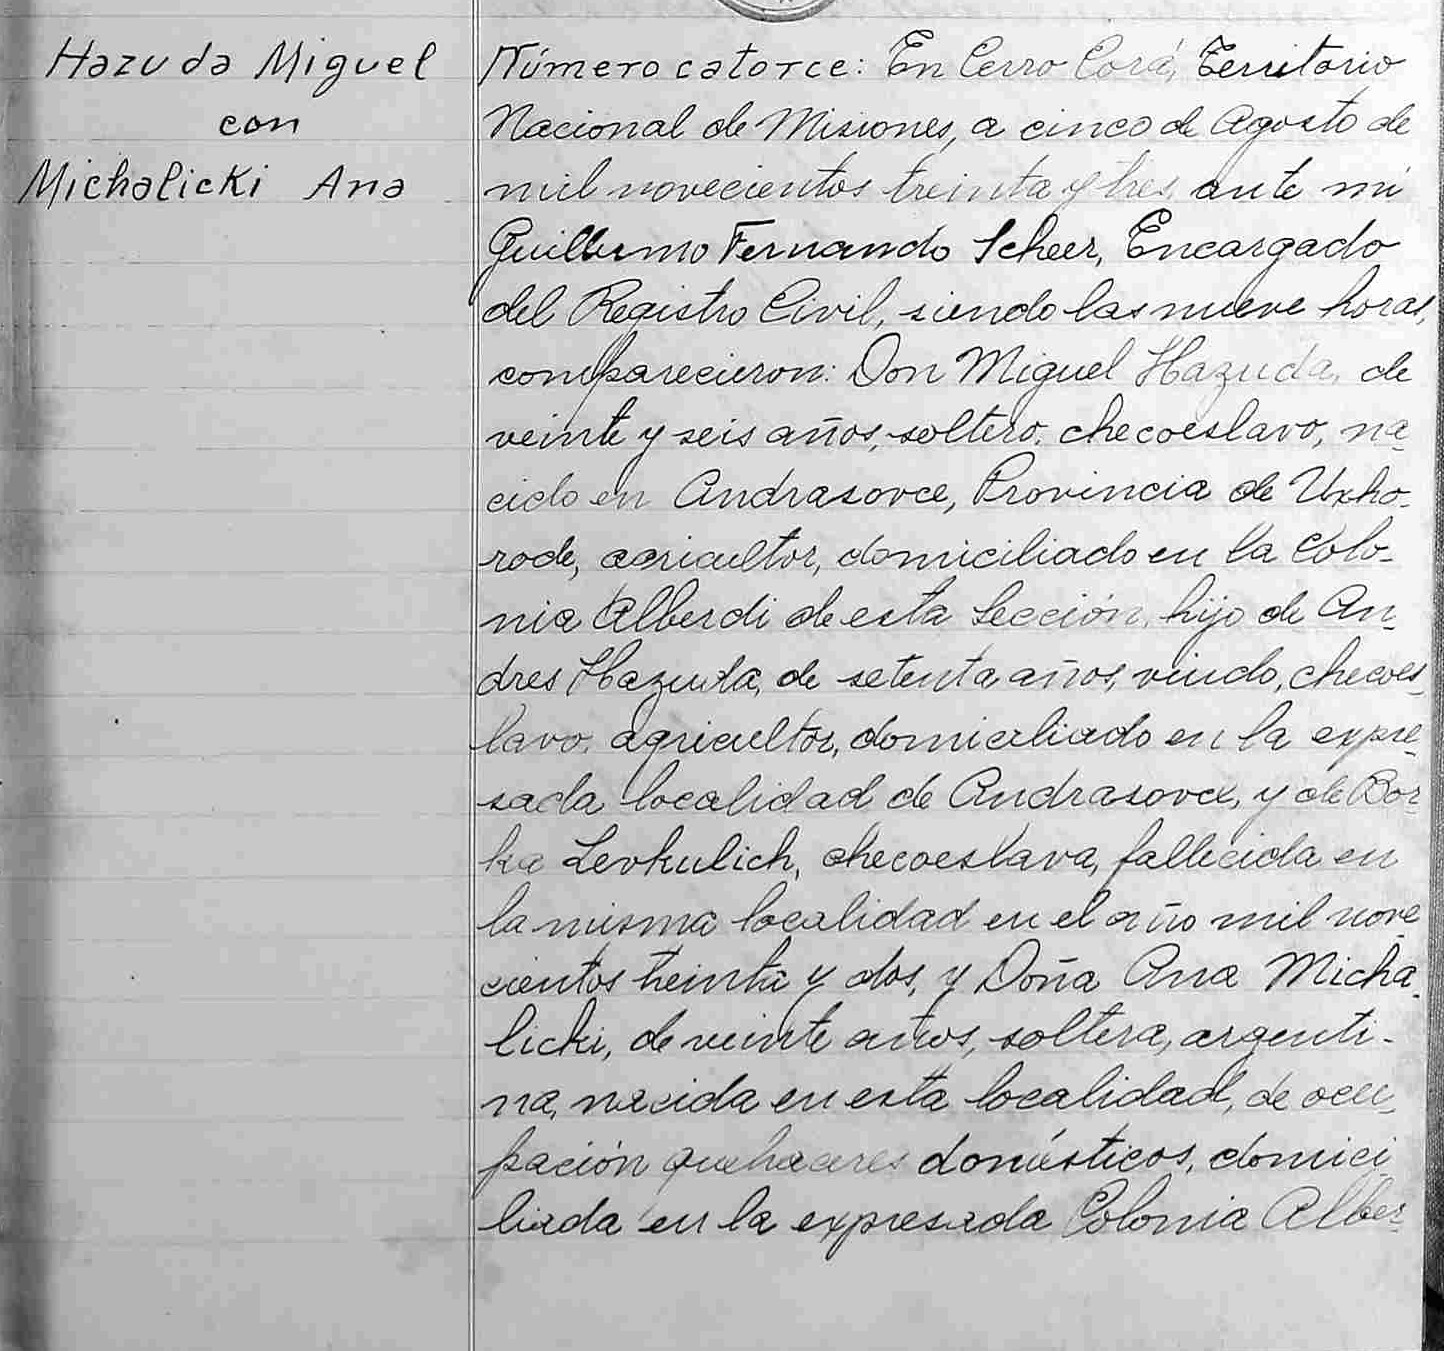 Hazuda Miguel
con
Michalicki Ana
Número catorce: En Cerro Corá, Territorio
Nacional de Misiones, a cinco de Agosto de
mil novecientos treinta y tres, ante mi
Guillermo Fernando Scheer, Encargado
del Registro Civil, siendo las nueve horas,
comparecieron: Don Miguel Hazuda, de
veinte y seis años, soltero, checoeslavo, na-
cido en Andrasovce, Provincia de Uxho-
rode, agricultor, domiciliado en la Colo-
nia Alberdi de esta Sección, hijo de An-
dres Hazuda, de setenta años, viudo, checoes-
lavo, agricultor, domiciliado en la expre-
sada localidad de Andrasovce, y de Bor-
ka Levkulich, checoeslava, fallecida en
la misma localidad en el año mil nove-
cientos treinta y dos, y Doña Ana Micha-
licki, de veinte años, soltera, argenti-
na, nacida en esta localidad, de ocu-
pación quehaceres domésticos, domici-
liada en la expresada Colonia Alber-